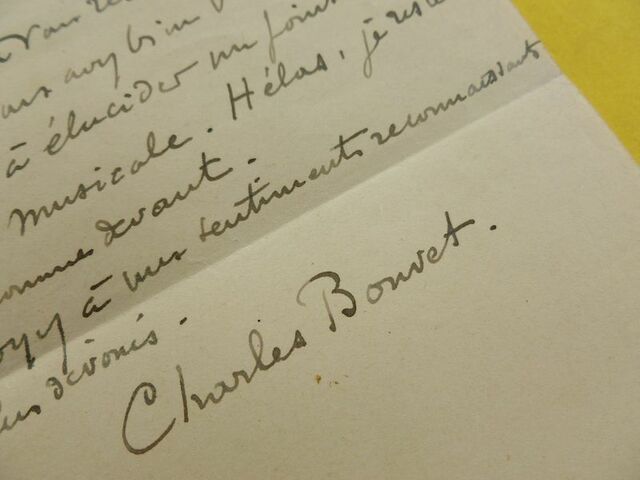 vous avez bien
à élucider un point
musicale. Hélas, je reste
comme devant.
à mes sentiments reconnaissants
dévoués.
Charles Bouvet.